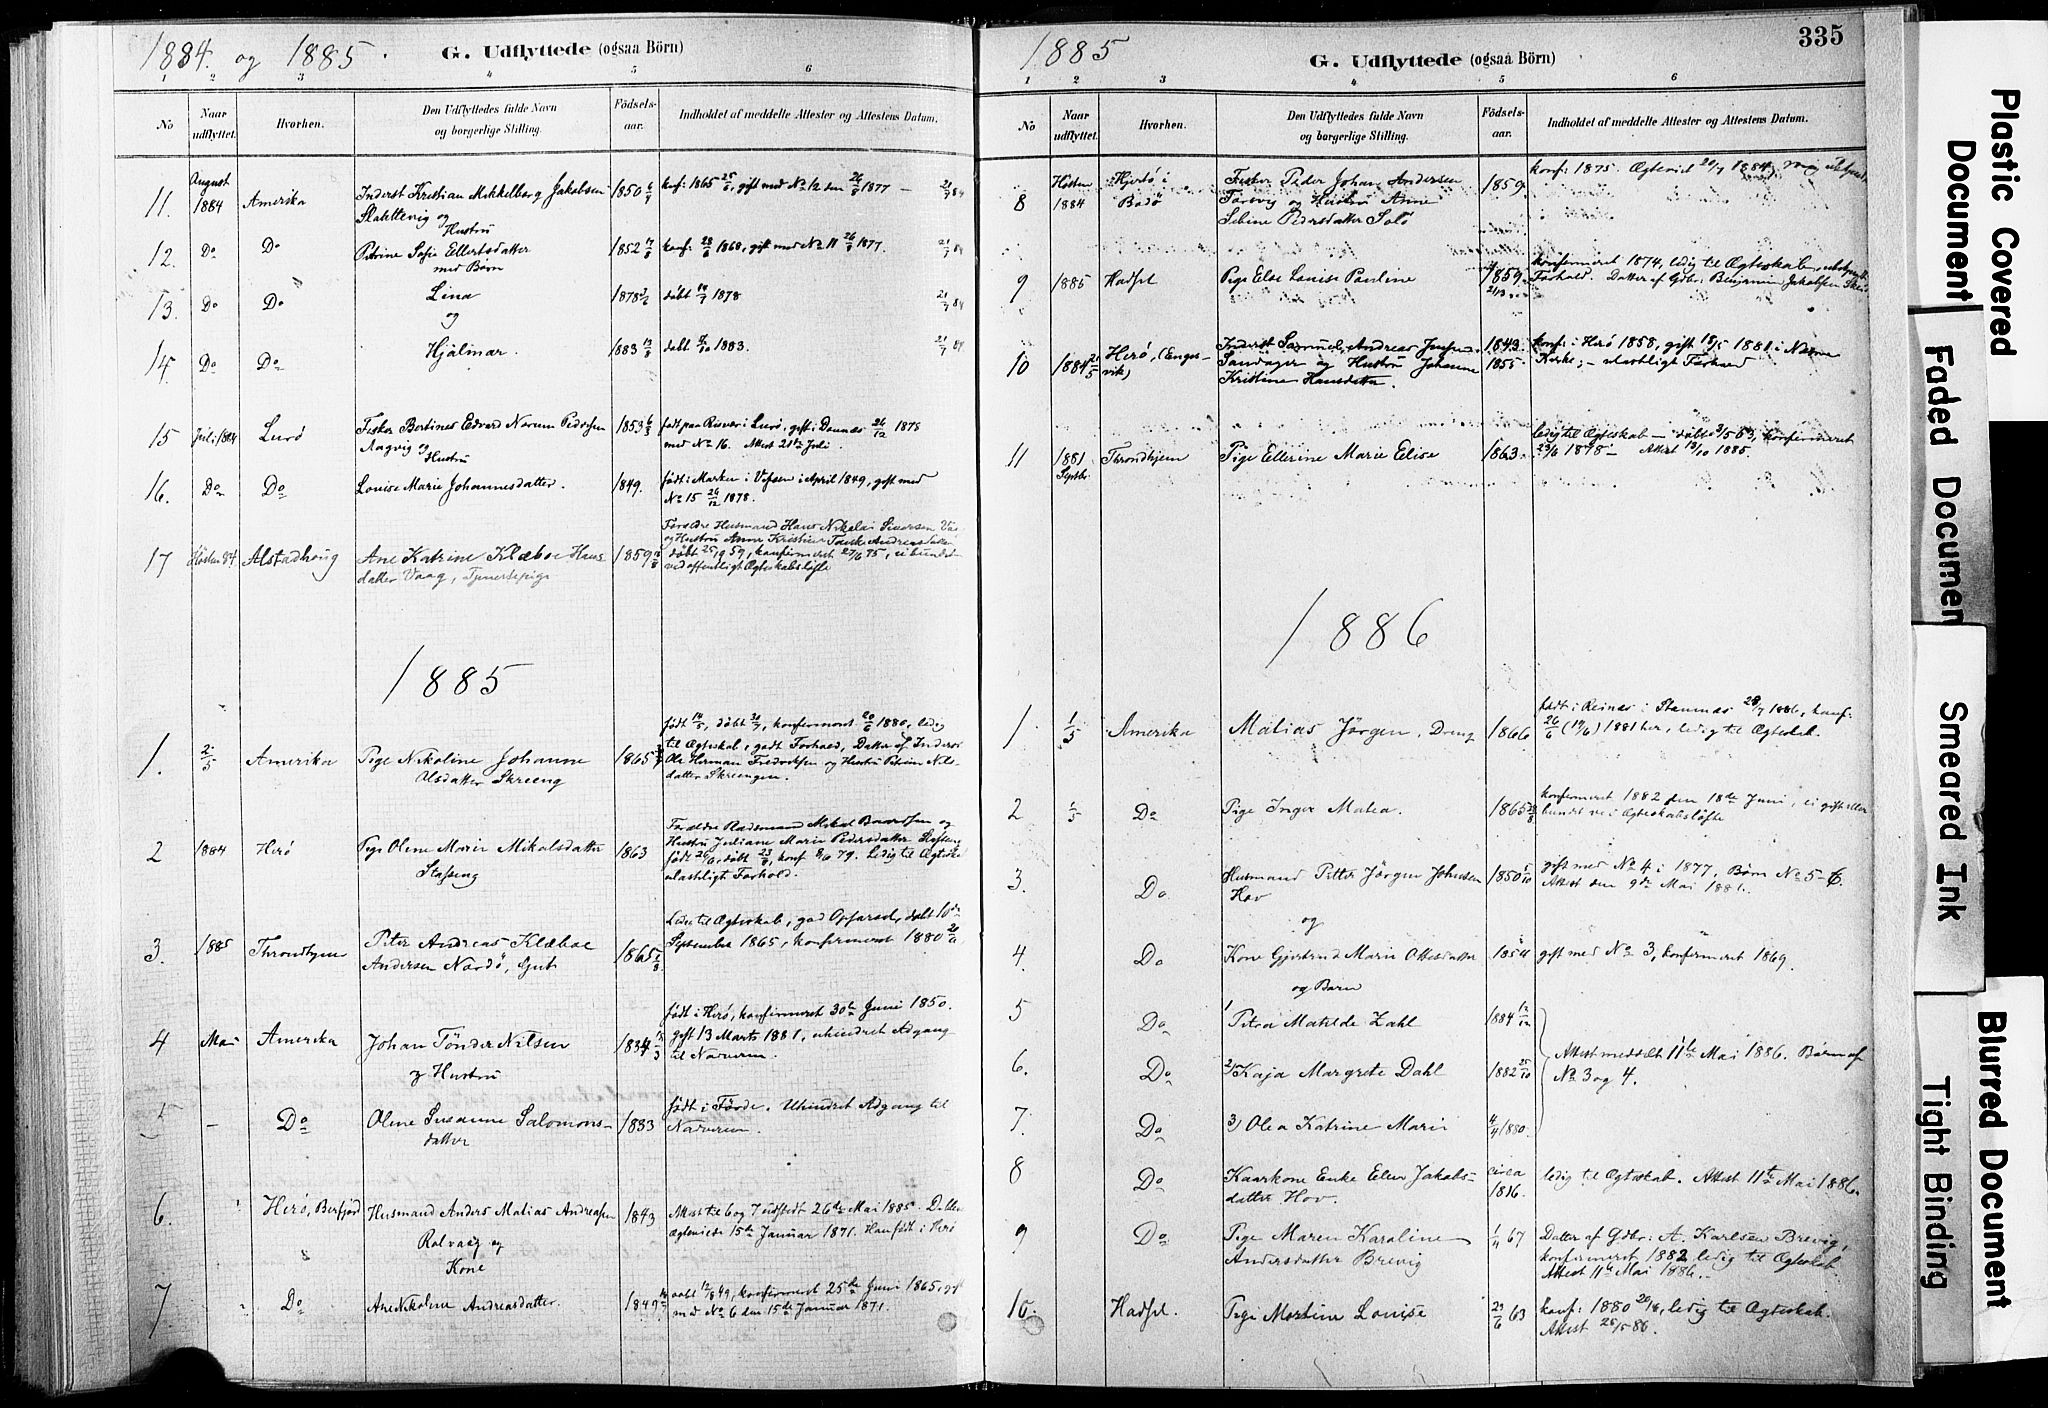 1884 og 1885.
G. Udflyttede (ogsaa Börn)
1 2 3 4 5 6
No
Naar udflyttet.
Hvorhen.
Den Udflyttedes fulde Navn
og borgerlige Stilling.
Födsels-
aar.
Indholdet af meddelte Attester og Attestens Datum.
11. August 1884 Amerika Inderst Kristian Mikkelborg Jakobsen 1850 konf: 1865 25/6, gift med No 12 den 26/8 1877 — 21/7 84
og
Hustru
12. Do Do Petrine Sofie Ellertsdatter 1852 konf: 28/6 1868, gift med No 11 26/8 1877. 21/7 84
med Börn
13. Do Do Lina 1878 döbt 14/7 1878 21/7 84
og
14. Do Do Hjalmar. 1883 döbt 1883. 21/7 84
15 Juli 1884 Lurö Fisker Bertines Edvard Norum Pedersen 1853 födt paa Risvær i Lurö, gift i Dönnes 26/12 1878
Aagvig og med No 16. Attest 21de Juli
Hustru
16. Do Do Louise Marie Johannesdatter. 1849. födt i Marken i Vefsen i April 1849, gift med
No 15 26/12 1878.
17 Hösten 84 Alstadhoug Ane Katrine Klæboe Hans 1859 Forældre Husmand Hans Nikolai Sivertsen
datter Vaag, Tjenestepige og Hustru Anne Kristine Andreasdatter
döbt 59, konfirmeret 27/6 75, ei bundet
ved offentligt Ægteskabslöfte
1885
1. 2/5 Amerika Pige Nikoline Johanne 1865 födt, döbt 30/7, konfirmeret 20/6 1880, ledig
Olsdatter Skreeng til Ægteskab, godt Forhold, Datter af Inderst
Ole Herman Fredriksen og Hustru Petrine Nils-
datter Skreengen.
2 1884 Herö Pige Oline Marie Mikalsdatter 1863 Forældre Mikal Baardsen og
Hustru Juliane Marie Pedersdatter
födt, döbt 23/8, konf 8/6 79. Ledig til Ægteskab
ulasteligt Forhold.
3. 1885 Throndhjem Peter Andreas Klæboe 1865 Ledig til Ægteskab, god Opförsel, döbt 10de
Andersen Nordö, September 1865, konfirmeret 1880 20/6
4 Mai Amerika Johan Tönder Nilsen 1834 födt i Herö, konfirmeret 30te Juni 1850.
og Hustru gift 13 Marts 1881, uhindret Adgang
til Nadveren.
5 — Do Oline Susanne Salomons- 1833 födt i Förde. Uhindret Adgang til
datter Nadveren.
6. " Herö, Husmand Anders Matias Andreasen 1843 Attest til 6 og 7 udstedt 26de Mai 1885.
Rolvaag og 15de Januar 1871. Han födt i Herö
Kone
7 " Do Ane Nikoline Andreasdatter. 1849 döbt 12/8 49, konfirmeret 25de Juni 1865, gift
med No 6 den 15de Januar 1871.
1885
G. Udflyttede (ogsaa Börn)
335
1 2 3 4 5 6
No
Naar udflyttet.
Hvorhen.
Den Udflyttedes fulde Navn
og borgerlige Stilling.
Födsels-
aar.
Indholdet af meddelte Attester og Attestens Datum.
8 Hösten 1884 Hjertö i Bodö Fisker Peder Johan Andersen 1859. konf: 1875. Ægteviet 20/7 1884,
Forsvig og Hustru Anne
Sebine Pedersdatter Solö
9 1885 Hadsel Pige Else Louise Pauline 1859 konfirmeret 1874, ledig til Ægteskab,
Forhold. Datter af Gdbr: Benjamin Jakobsen
10 1884 21/5 Herö, (Enges- Inderst Samuel Andreas Jensen 1843. konf: i Herö 1858, gift 18/5 1881 i Næsne
vik) Sandager og Hustru Johanne 1855 Kirke; — ulasteligt Forhold
Kristine Hansdatter.
11 1881 Septbr. Throndhjem Pige Ellerine Marie Elise 1863. ledig til Ægteskab — döbt 3/5 63, konfirmeret
23/6 1878 — Attest 13/10 1885.
1886
1 1/5 Amerika Matias Jörgen, Dreng 1866 födt i Reinæs i Stamnæs, konf:
26/6 (19/6) 1881 her, ledig til Ægteskab.
2 1/5 Do Pige Inger Matea. 1865 konfirmeret 1882 den 18de Juni, ei gift eller
bundet ved Ægteskabslöfte
3. Do Husmand Petter Jörgen Johnsen 1850 gift med No 4 i 1877. Börn No 5-6.
Hov Attest den 9de Mai 1881.
og
4. Do Kone Gjertrud Marie Ottesdatter 1854 gift med No 3, konfirmeret 1869.
og Barn
5 Do 1 Petra Matilde Dahl 1884 12/12
6. Do 2) Kaja Margrete Dahl 1882 25/10 Attest meddelt 11te Mai 1886. Börn af
No 3 og 4.
7. Do 3) Olea Katrine Marie 4/4 1880.
8 Do Kaarkone Enke Elen Jakobs- circa ledig til Ægteskab. Attest 11te Mai 1886.
datter Hov. 1816.
9 Do Pige Maren Karoline 1/4 67 Datter af Gdbr: A. Karlsen Brevig,
Andersdatter Brevig konfirmeret 1882, ledig til Ægteskab.
Attest 11te Mai 1886.
10. Hadsel. Pige Martine Louise 29/6 63 konf: 1880 20/6, ledig til Ægteskab.
Attest 25/5 86.
Plastic Covered
Document
Faded Document
Smeared Ink
Blurred Document
Tight Binding